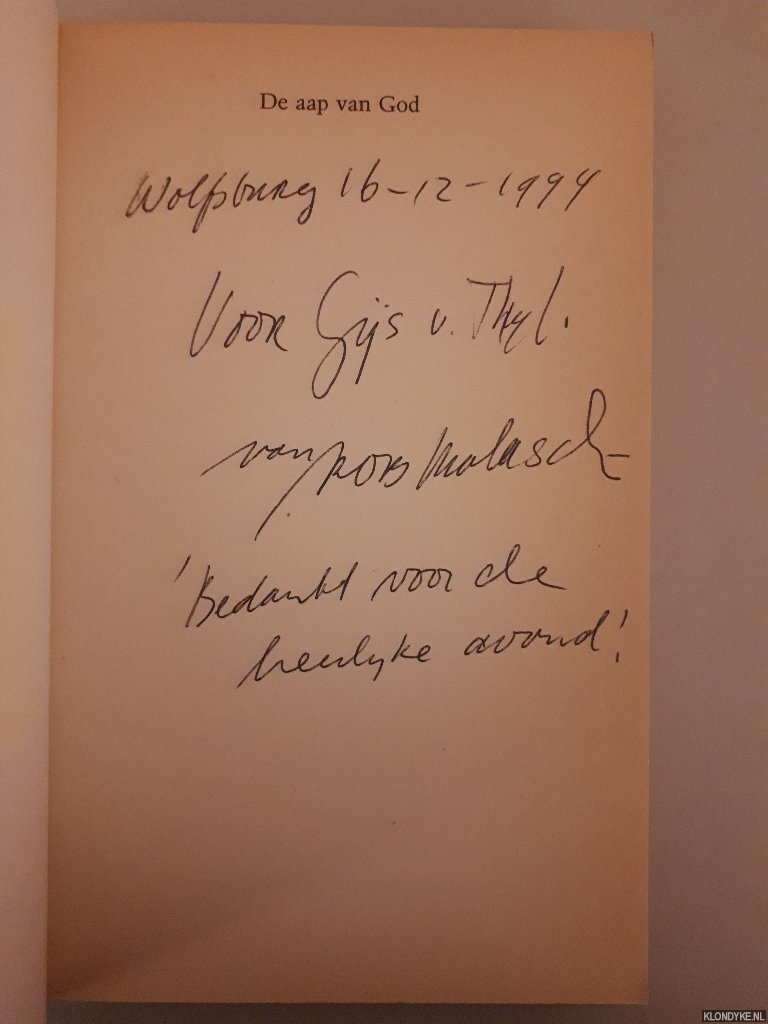 De aap van God
Wolfsburg 16-12-1994
Voor Gijs v. Thyl.
van Rob Malasch
'Bedankt voor de
heerlyke avond!
KLONDYKE.NL